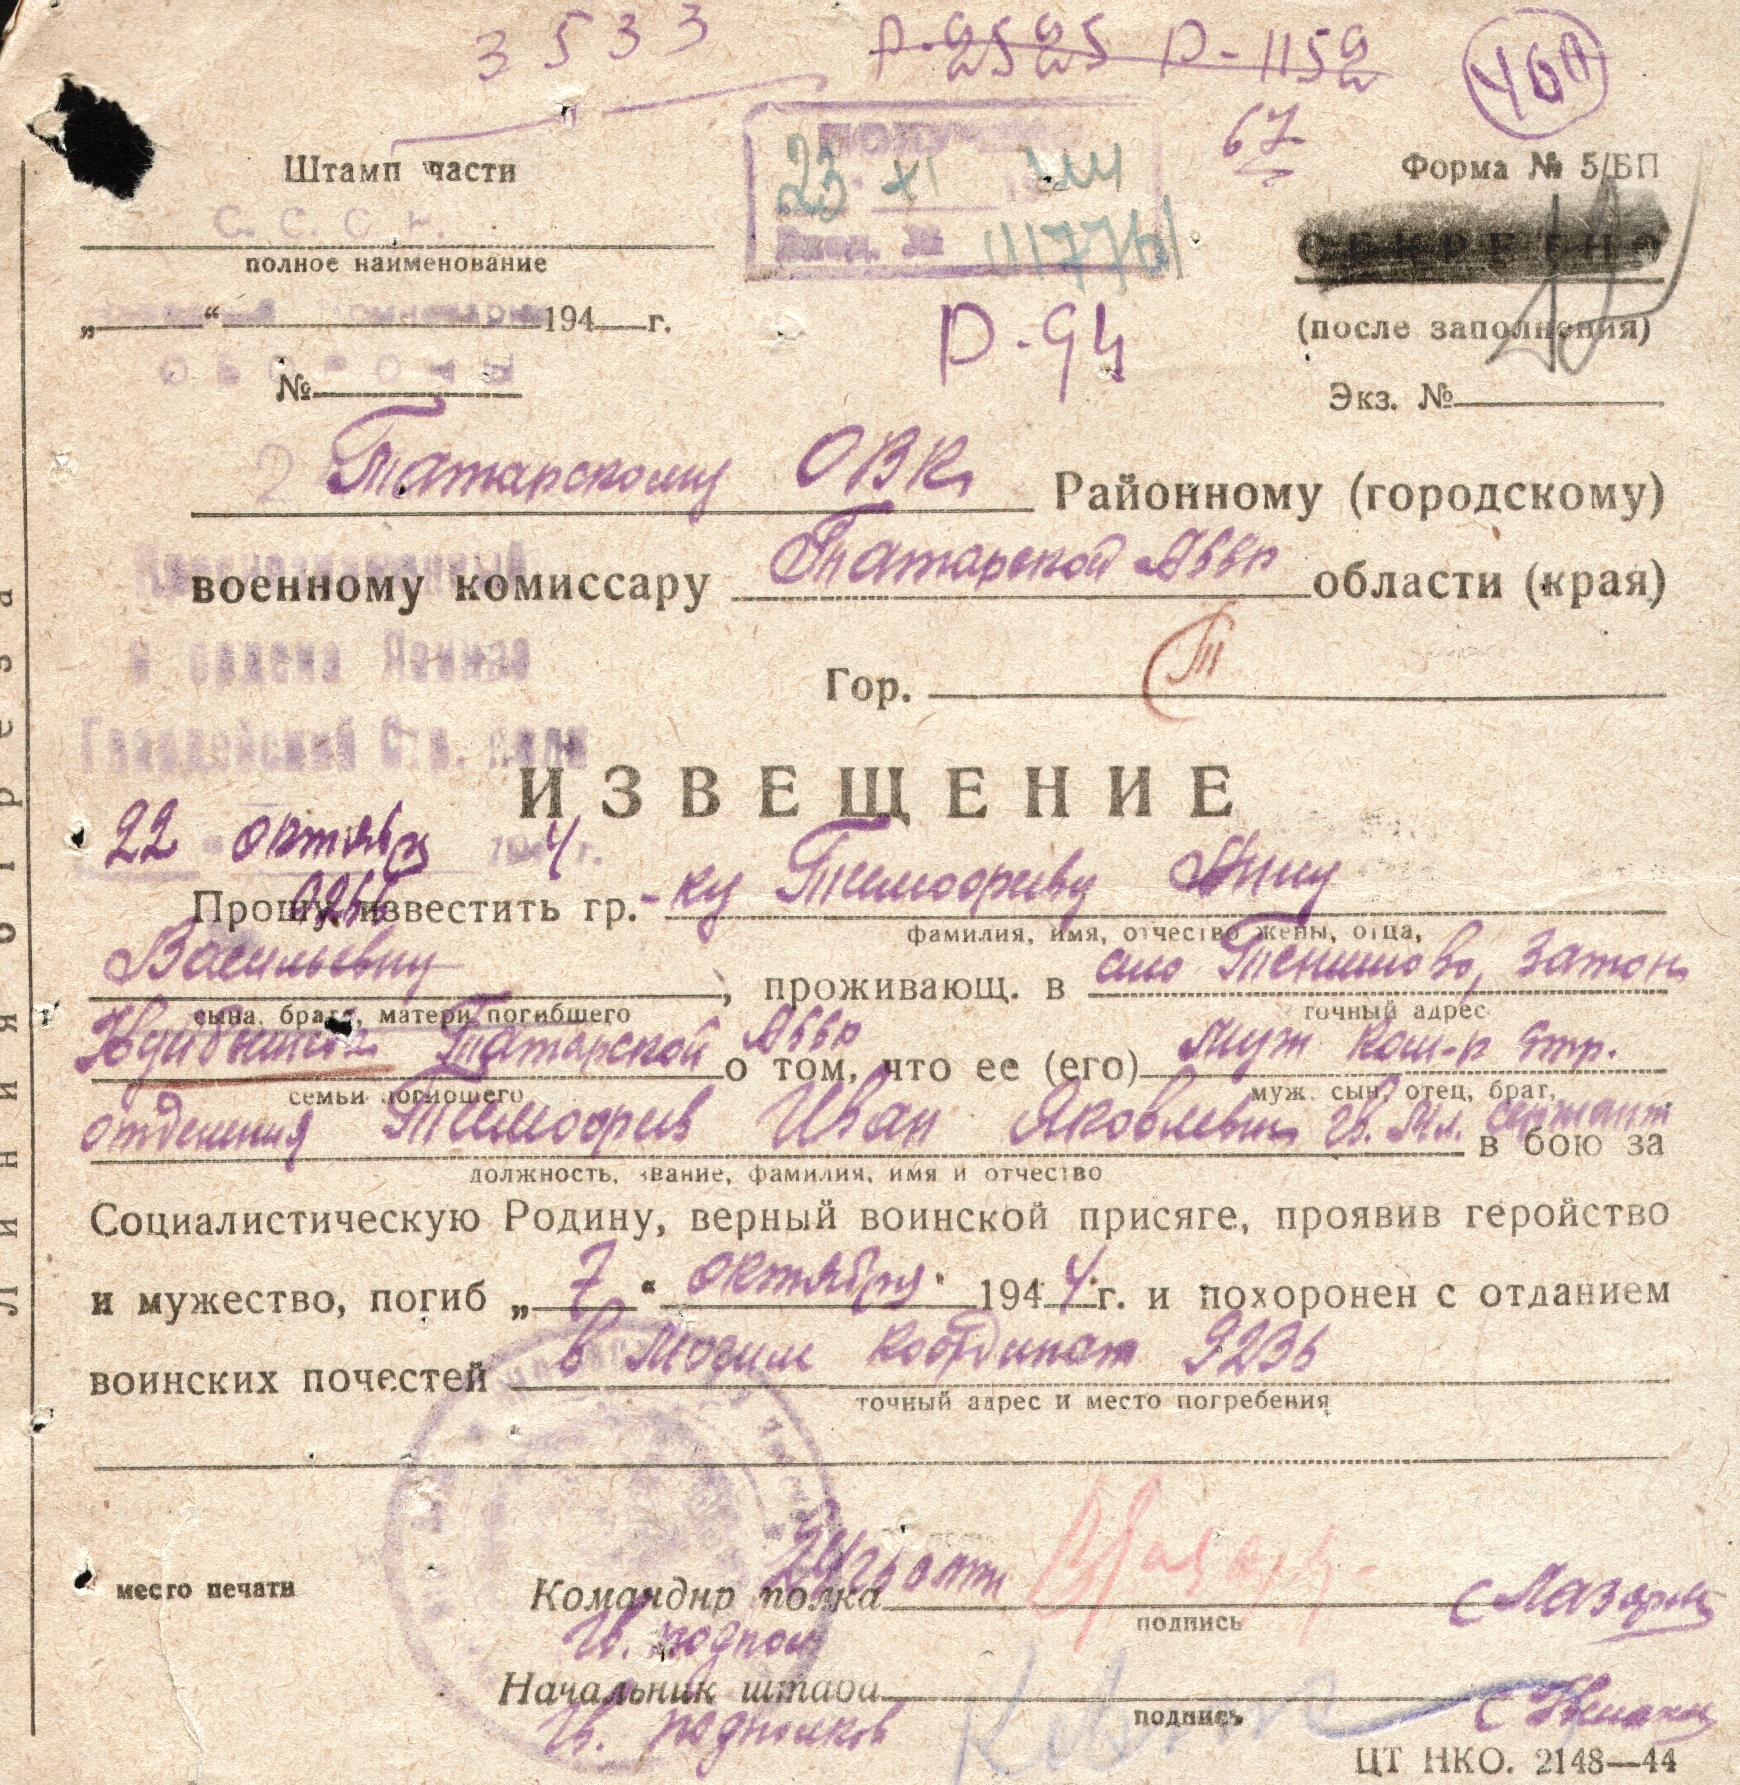 3533 Р-2525 Р-1152 460
67
Штамп части
ПОЛУЧЕНО
23 XI 44
Вход. №
Форма № 5/БП
С. С. С. Р.
полное наименование
„ “ 194 г.
(после заполнения)
ОБОРОНЫ
№
Р-94
Экз. №
2 Татарскому ОВК Районному (городскому)
Краснознаменный
военному комиссару Татарской АССР области (края)
и ордена Ленина
Гор. Т
Гвардейский Стр. полк
ИЗВЕЩЕНИЕ
22 октября 1944 г.
0266
Прошу известить гр.-ку Тимофееву Анну
фамилия, имя, отчество жены, отца,
Васильевну, проживающ. в село Тенишево, Затон
сына, брата, матери погибшего точный адрес
Куйбышев Татарской АССР о том, что ее (его) муж Ком-р стр.
семьи погибшего муж, сын, отец, брат,
отделения Тимофеев Иван Яковлевич гв. мл. сержант в бою за
должность, звание, фамилия, имя и отчество
Социалистическую Родину, верный воинской присяге, проявив геройство
и мужество, погиб „ 7 “ октября 1944 г. и похоронен с отданием
воинских почестей в могиле координат 9236
точный адрес и место погребения
место печати
Командир полка
подпись
Гв. подпол
Начальник штаба
подпись
Гв. подполков
ЦТ НКО. 2148—44
Линия отреза